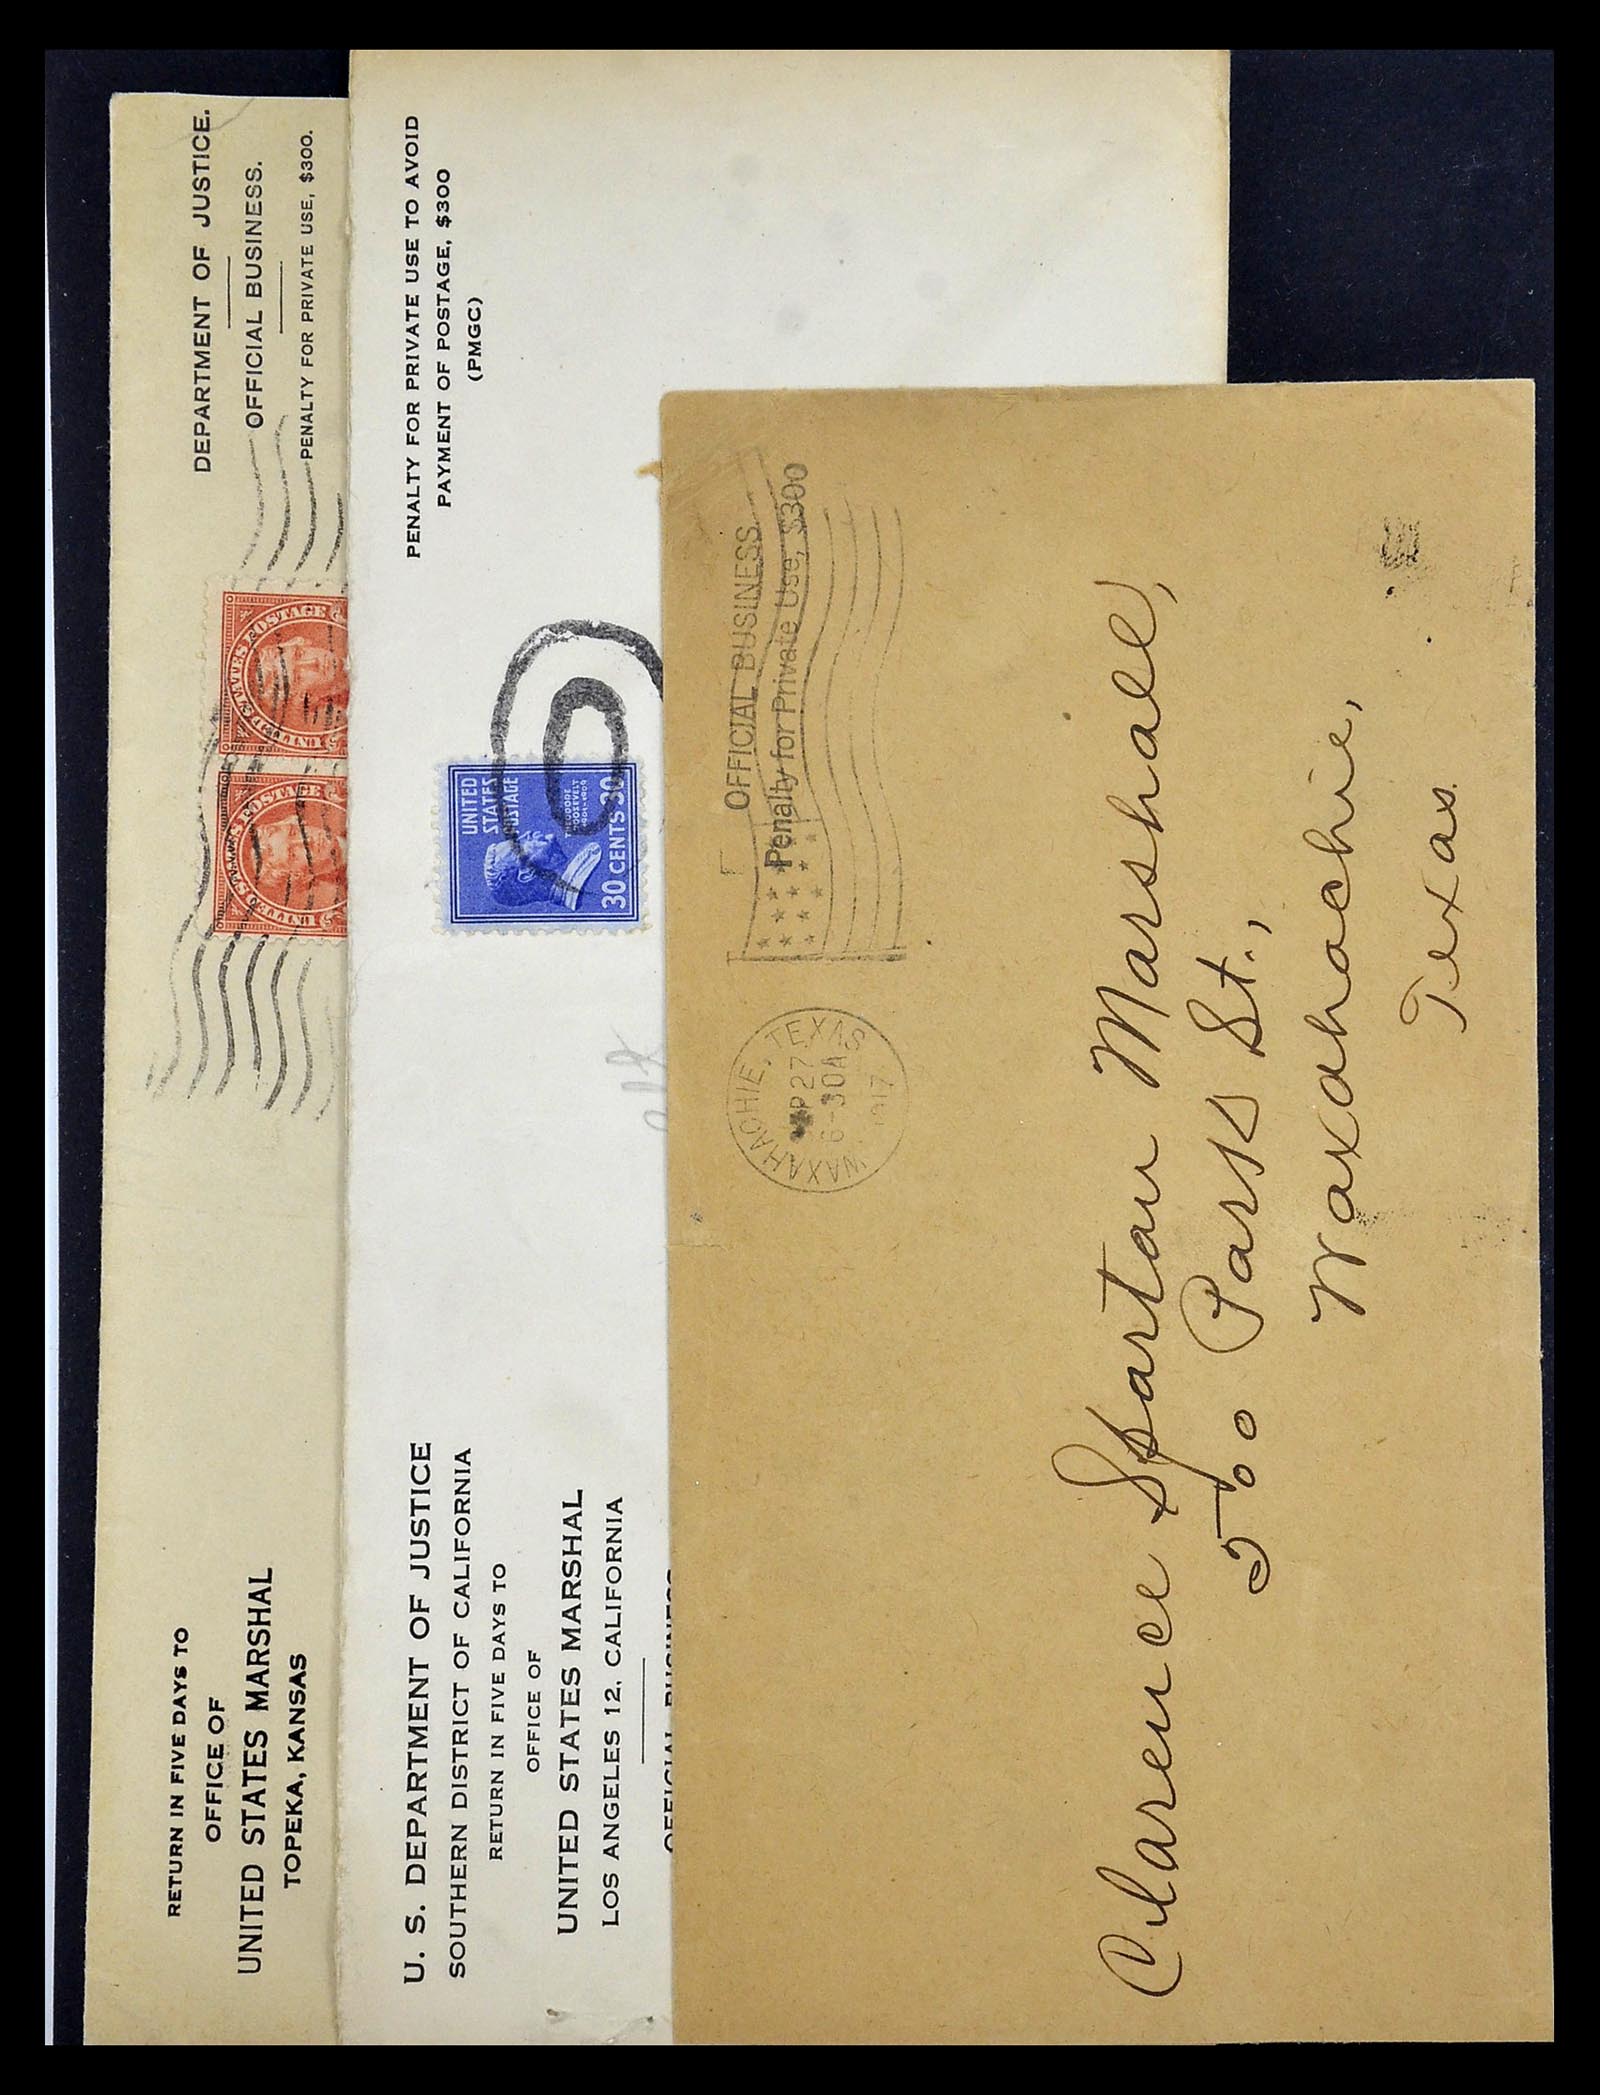 DEPARTMENT OF JUSTICE.
OFFICIAL BUSINESS.
PENALTY FOR PRIVATE USE, $300.
UNITED STATES POSTAGE
UNITED STATES POSTAGE
RETURN IN FIVE DAYS TO
OFFICE OF
UNITED STATES MARSHAL
TOPEKA, KANSAS
PENALTY FOR PRIVATE USE TO AVOID
PAYMENT OF POSTAGE, $300
(PMGC)
UNITED
STATES
POSTAGE
THEODORE
ROOSEVELT
1901-1909
30 CENTS 30
U. S. DEPARTMENT OF JUSTICE
SOUTHERN DISTRICT OF CALIFORNIA
RETURN IN FIVE DAYS TO
OFFICE OF
UNITED STATES MARSHAL
LOS ANGELES 12, CALIFORNIA
OFFICIAL BUSINESS
OFFICIAL BUSINESS
Penalty for Private Use, $300
WAXAHACHIE, TEXAS
27
6-30A
1917
Clarence Spartan Marshall,
500 Parks St.,
Waxahachie,
Texas.